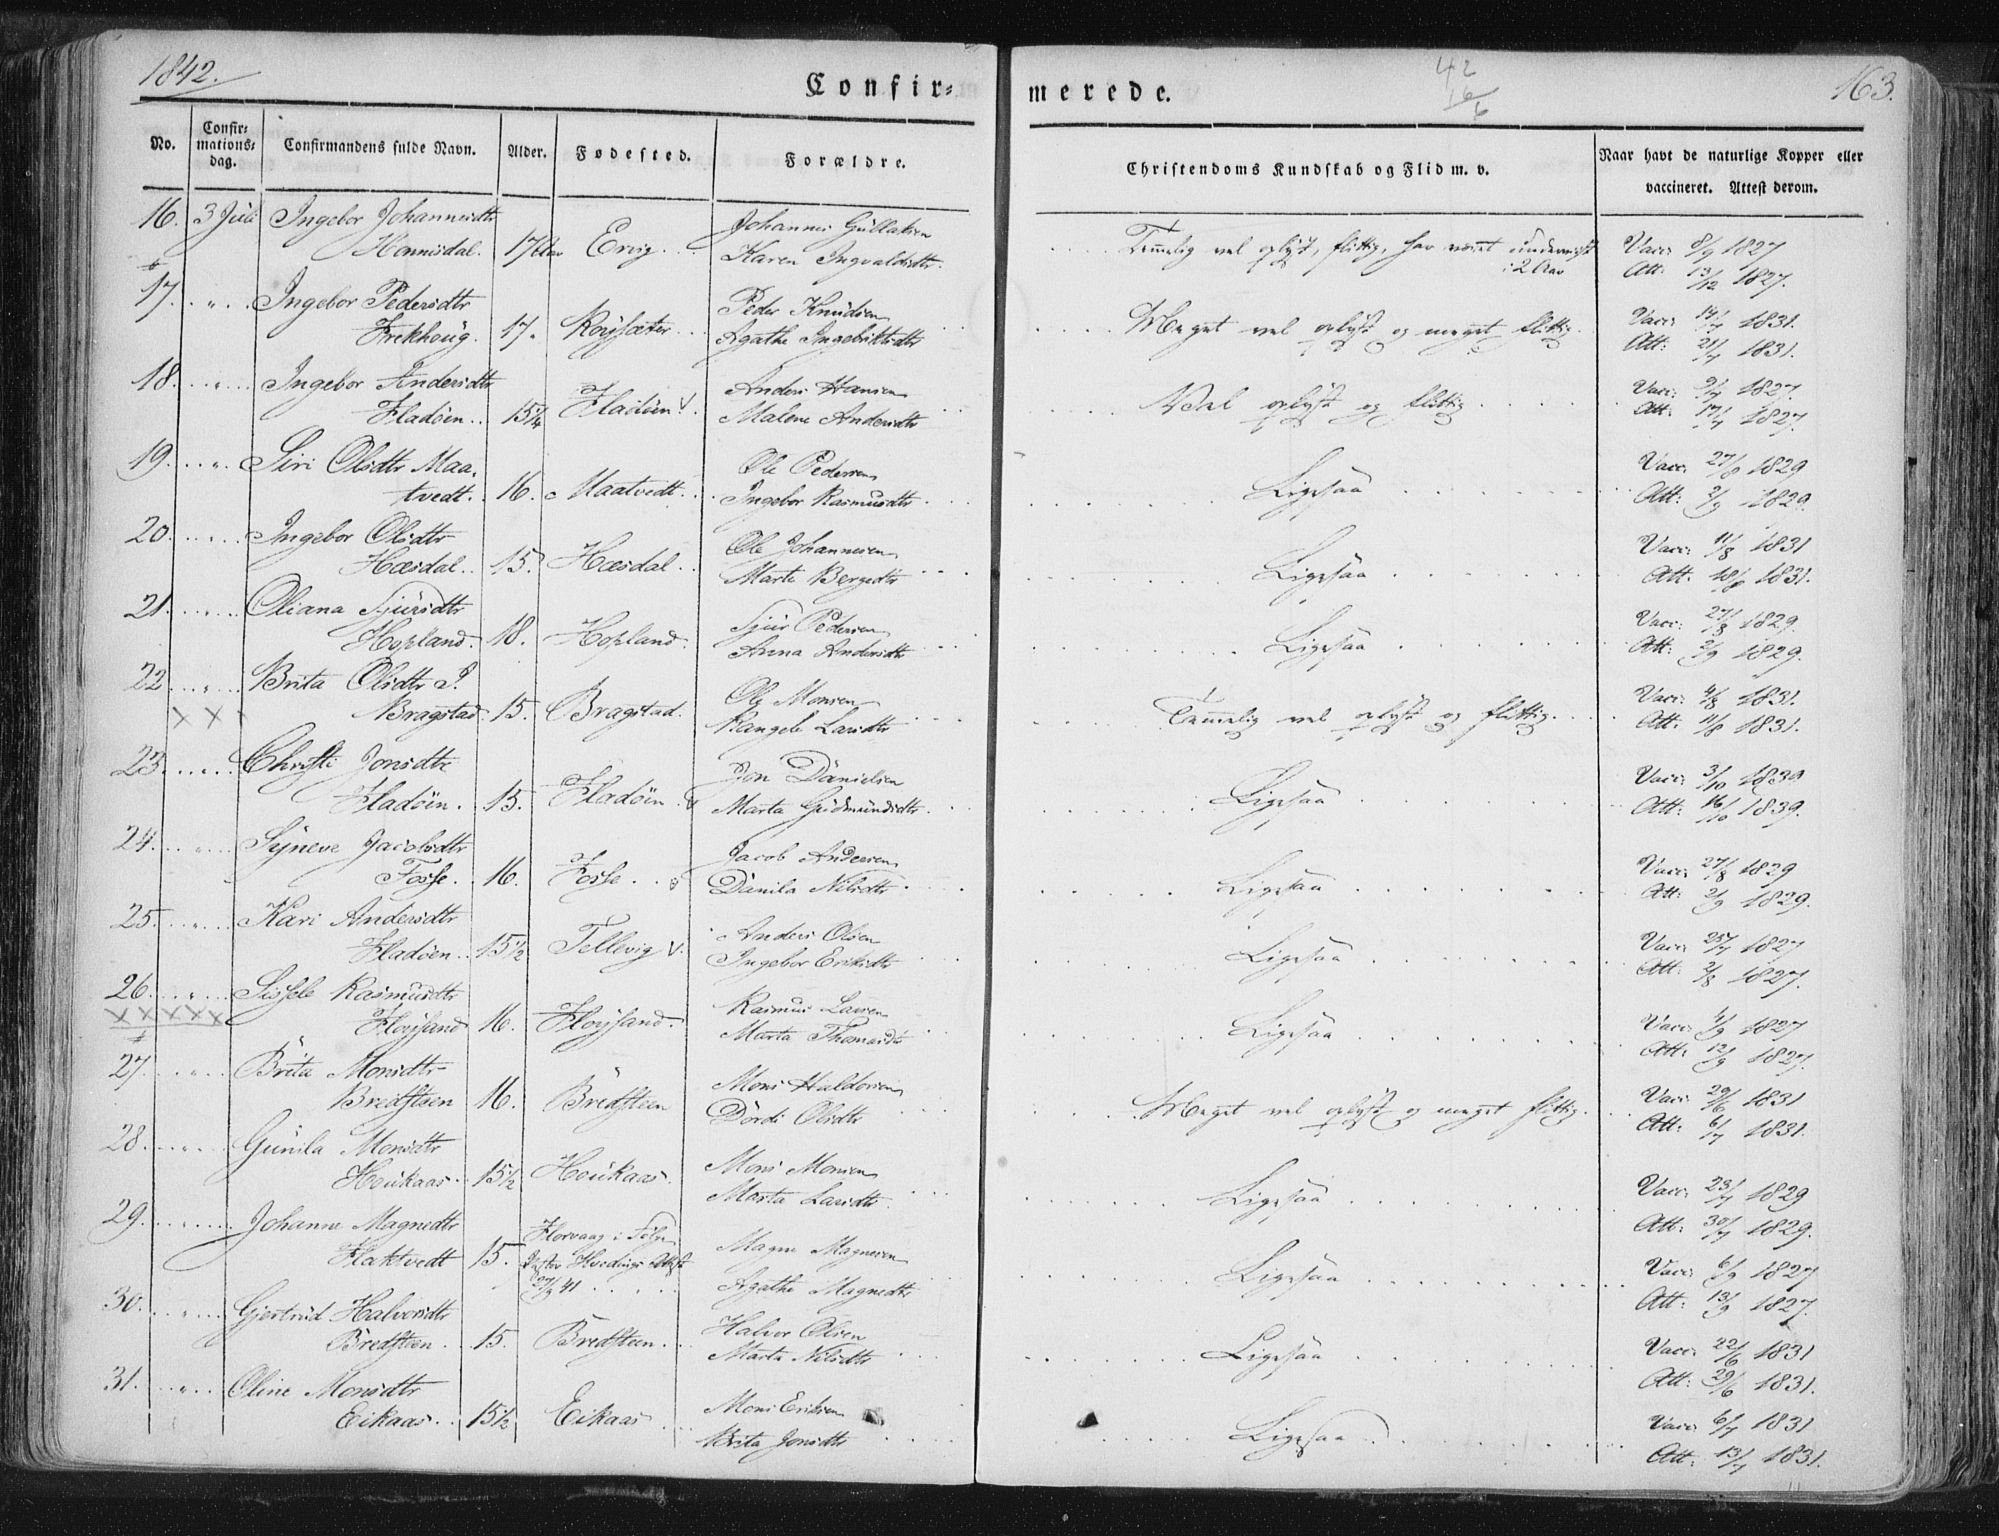 1842.
Confir=
merede.
42
16
6
163.
No.
Confir=
mations=
dag.
Confirmandens fulde Navn.
Alder.
Fødested.
Forældre.
Christendoms Kundskab og Flid m. v.
Naar havt de naturlige Kopper eller
vaccineret. Attest derom.
16. 3 Juli Ingebor Johannesdtr Johannes Gullaksen
Hannisdal. 17 Aar Ervig. Karen Ingvaldsdtr. Temmelig vel oplyst, flittig, har været undervist i 2 Aar Vacc: 8/9 1827
Att: 13/12 1827.
17. " Ingebor Pedersdtr Peder Knudsen
Frekhoug. 17. Røysæter Agathe Ingebriktsdtr Meget vel oplyst og meget flittig. Vacc: 14/7 1831.
Att: 21/7 1831.
18. " Ingebor Andersdtr Anders Hansen
Fladøen. 15 1/4 Fladøen V. Malene Andersdtr Vel oplyst og flittig Vacc: 9/7 1827.
Att: 17/7 1827.
19. " Siri Olsdtr Maa- Ole Pedersen
tvedt. 16. Maatvedt. Ingebor Rasmusdtr Ligesaa Vacc: 27/8 1829
Att: 2/9 1829.
20. " Ingebor Olsdtr Ole Johannesen
Hæsdal. 15. Hæsdal. Marte Bergesdtr Ligesaa Vacc: 11/8 1831
Att. 18/8 1831.
21. " Oliana Sjursdtr Sjur Pedersen
Hopland. 18. Hopland. Anna Andersdtr Ligesaa Vacc: 27/8 1829.
Att: 2/9 1829.
22 " Brita Olsdtr Ole Monsen
x x Bragstad. 15. Bragstad. Rangele Larsdtr Temmelig vel oplyst og flittig. Vacc: 4/8 1831.
Att. 11/8 1831.
23. " Christi Jonsdtr Jon Danielsen
Fladøen. 15. Fladøen. Marta Gudmundsdtr. Ligesaa Vacc: 3/10 1839
Att: 16/10 1839.
24. " Syneve Jacobsdtr Jacob Andersen
Fosse. 16. Fosse. Danila Nilsdtr. Ligesaa Vacc: 27/8 1829
Att: 2/9 1829.
25. " Kari Andersdtr Anders Olsen
Fladøen. 15 1/2 Tellevig V. Ingebor Eriksdtr Ligesaa Vacc: 25/7 1827
Att: 2/8 1827.
26. " Sissele Rasmusdtr Rasmus Larsen
x x x x x Floysand 16. Floysand. Marta Thomasdtr Ligesaa Vacc: 4/9 1827
Att: 12/9 1827.
27. " Brita Monsdtr Mons Haldorsen
Bredsteen 16. Bredsteen Dordi Olsdtr Meget vel oplyst og meget flittig. Vacc: 29/6 1831
Att: 6/7 1831.
28. " Gunila Monsdtr Mons Monsen
Houkaas. 15 1/2 Houkaas. Marta Larsdtr. Ligesaa Vacc: 23/7 1829
Att: 30/7 1829.
29. " Johanne Magnedtr Florvaag i Følge Magne Magnesen
Flaktvedt 15. Pastor Hvedings Attest Agathe Magnedtr Ligesaa Vacc: 6/9 1827
27/9 41 Att: 13/9 1827.
30. " Gjertrud Halvorsdtr Halvor Olsen
Bredsteen. 15. Bredsteen. Marta Nilsdtr Ligesaa Vacc: 22/6 1831
Att: 29/6 1831.
31. " Oline Monsdtr Mons Eriksen
Eikaas. 15 1/2 Eikaas Brita Jonsdtr Ligesaa Vacc: 6/7 1831
Att: 13/7 1831.